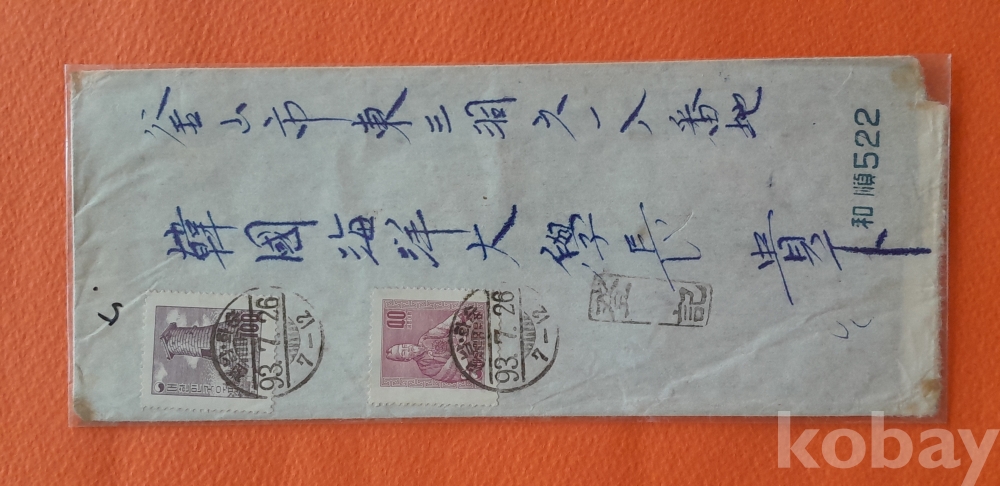 釜山市東三洞六一八番地
韓國海洋大學長 貴下
和順522
登記
100
93.7.26
7-12
40
93.7.26
7-12
kobay